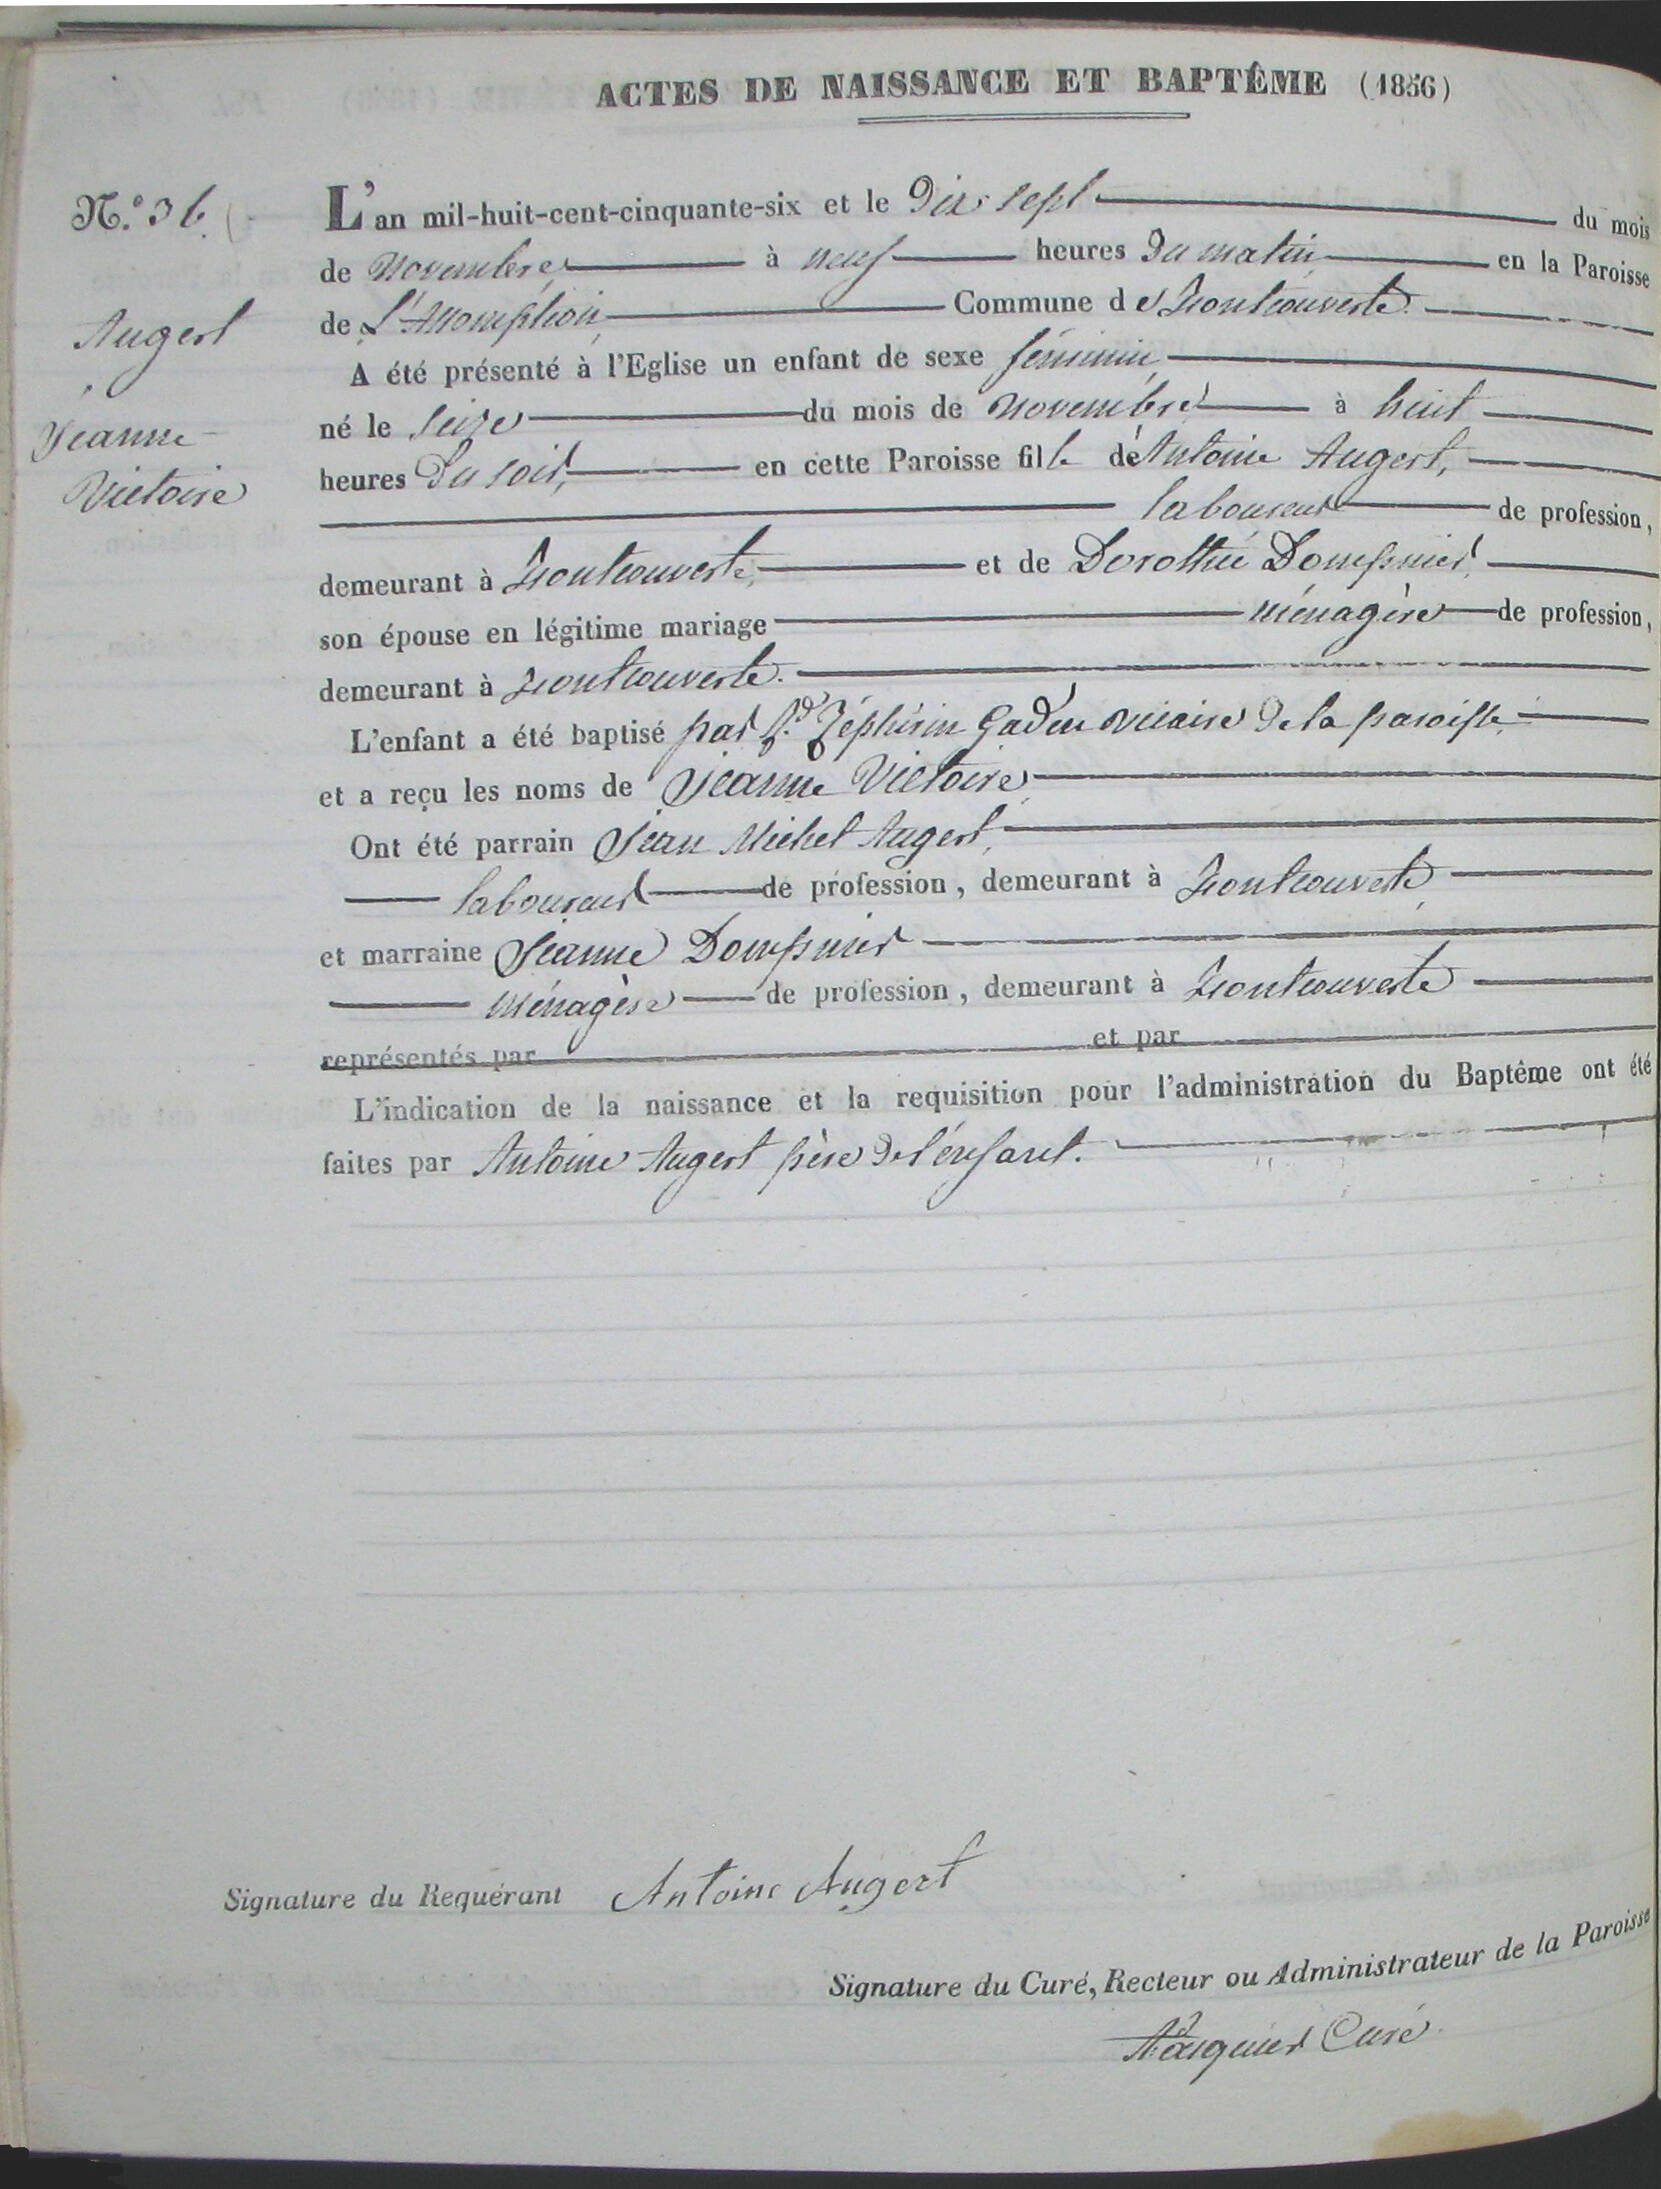 ACTES DE NAISSANCE ET BAPTÊME (1856)
N.º 36.
Augert
Jeanne
Victoire
L'an mil-huit-cent-cinquante-six et le Dix sept du mois
de Novembre à neuf heures Du matin en la Paroisse
de L'Assomption Commune de Fontcouverte.
A été présenté à l'Eglise un enfant de sexe féminin
né le seize du mois de Novembre à huit
heures Du soir, en cette Paroisse fille de Antoine Augert,
laboureur de profession,
demeurant à Fontcouverte, et de Dorothée Dompnier,
son épouse en légitime mariage ménagère de profession,
demeurant à Fontcouverte.
L'enfant a été baptisé par R.d Zéphirin Gadin vicaire De la paroisse
et a reçu les noms de Jeanne Victoire
Ont été parrain Jean Michel Augert,
laboureur de profession, demeurant à Fontcouverte,
et marraine Jeanne Dompnier
ménagère de profession, demeurant à Fontcouverte
représentés par et par
L'indication de la naissance et la requisition pour l'administration du Baptême ont été
faites par Antoine Augert père De l'enfant.
Signature du Requérant Antoine Augert
Signature du Curé, Recteur ou Administrateur de la Paroisse
Curé